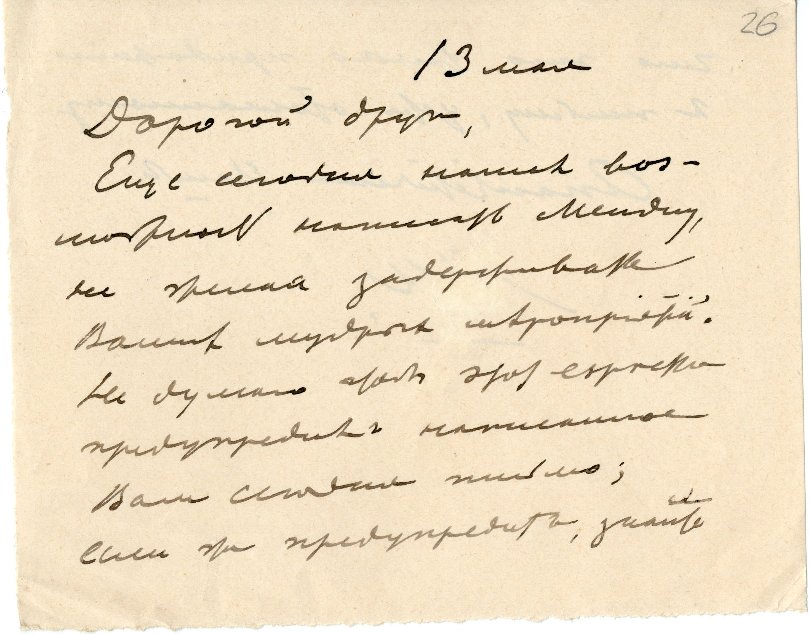 26
13 мая
Дорогой друг,
Еще сегодня нашел воз-
можность написать Менду,
не желая задерживать
Ваших мудрых мѣропріятій.
Не думаю чтобъ это
предупредитъ написанное
Вам сегодня письмо;
если же предупредитъ, знайте